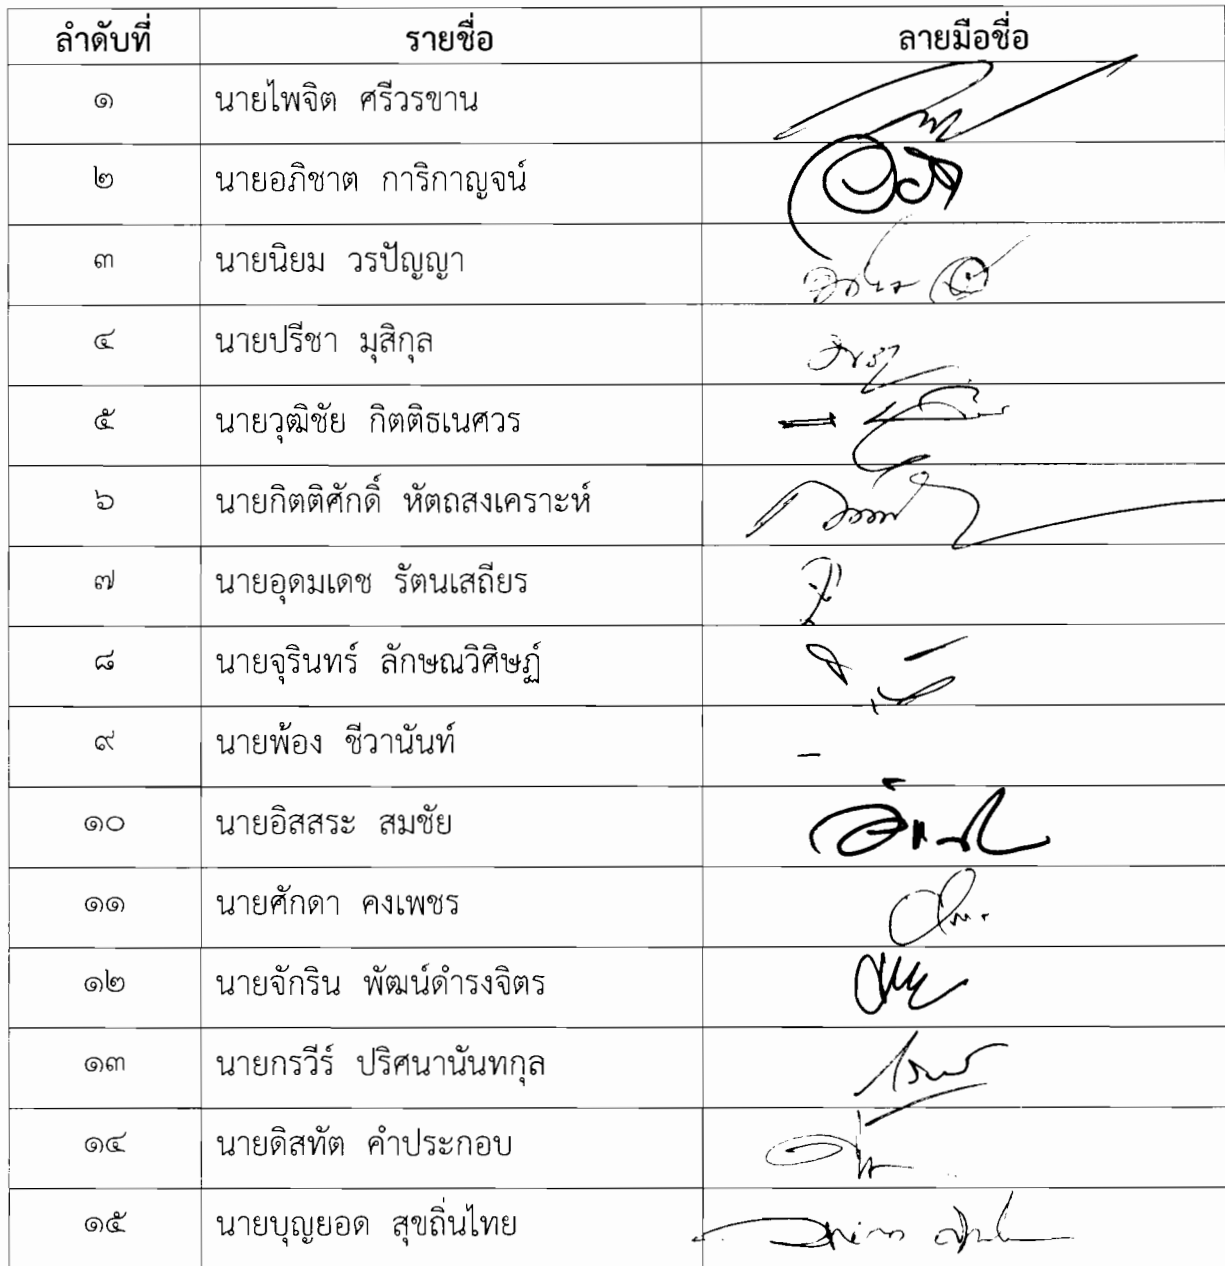 ลำดับที่ รายชื่อ ลายมือชื่อ
๑ นายไพจิต ศรีวรขาน
๒ นายอภิชาต การิกาญจน์
๓ นายนิยม วรปัญญา
๔ นายปรีชา มุสิกุล
๕ นายวุฒิชัย กิตติธเนศวร
๖ นายกิตติศักดิ์ หัตถสงเคราะห์
๗ นายอุดมเดช รัตนเสถียร
๘ นายจุรินทร์ ลักษณวิศิษฏ์
๙ นายพ้อง ชีวานันท์ -
๑๐ นายอิสสระ สมชัย
๑๑ นายศักดา คงเพชร
๑๒ นายจักริน พัฒน์ดำรงจิตร
๑๓ นายกรวีร์ ปริศนานันทกุล
๑๔ นายดิสทัต คำประกอบ
๑๕ นายบุญยอด สุขถิ่นไทย